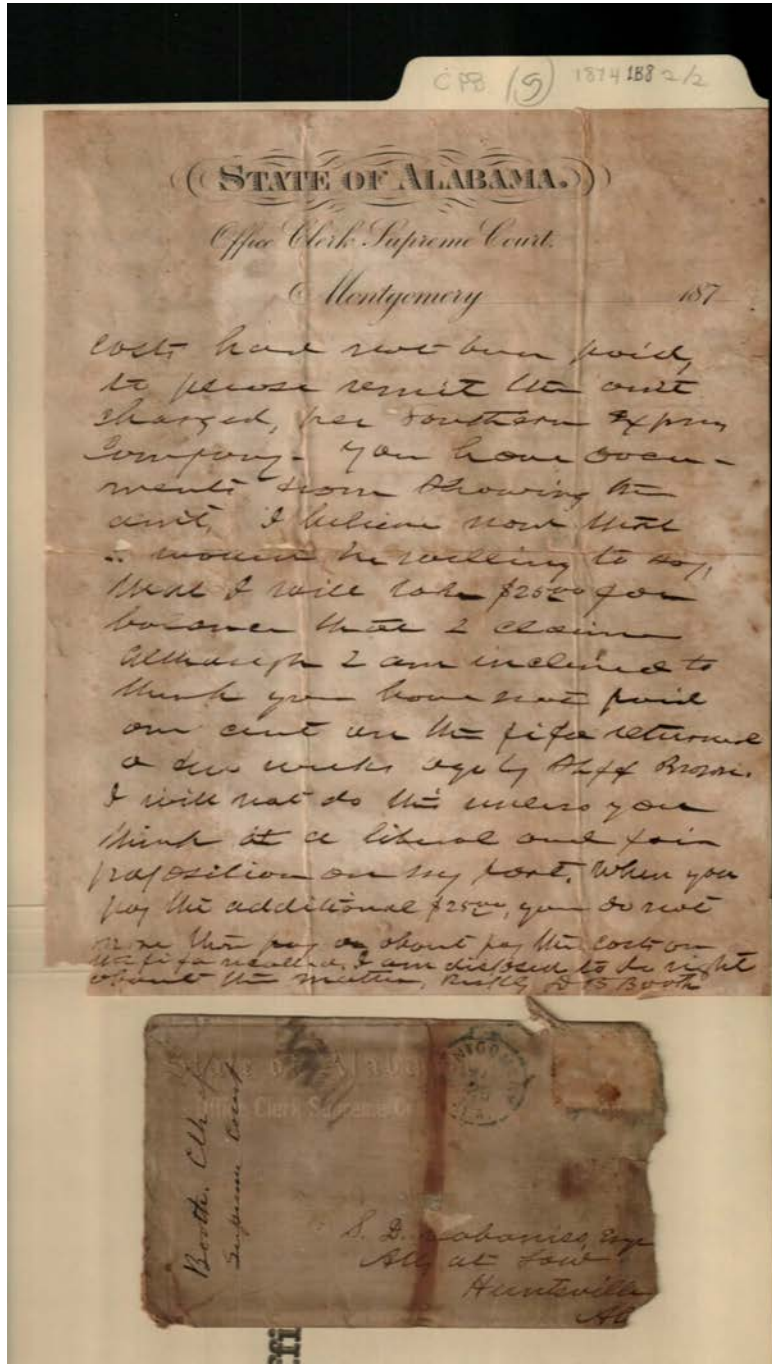 CPB (9) 1874 188 2/2
STATE OF ALABAMA.
Office Clerk Supreme Court.
Montgomery 187
costs had not been paid,
to please remit the amt
charged, per Southern Express
Company - You have
ments from showing the
amt, I believe now that
would be willing to say,
that I will take $25.00 for
balance that I claim
although I am inclined to
think you have not paid
one cent on the fifa returned
a few weeks ago by Shff Brown.
I will not do this unless you
think it a liberal and fair
proposition on my part. When you
pay the additional $25.00, you do not
more than pay or about pay the costs on
the fi fa recalled. I am disposed to do right
about the matter,
State of Alabama
Office Clerk Supreme Co
Booth, Clk of
Supreme Court
S. D. Cabaniss, Esqr
Atty at Law
Huntsville
Al
ffi